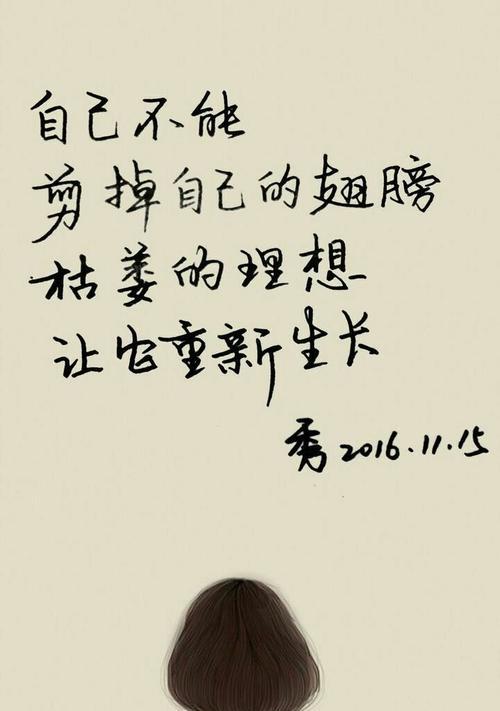 自己不能
剪掉自己的翅膀
枯萎的理想
让它重新生长
秀2016.11.15